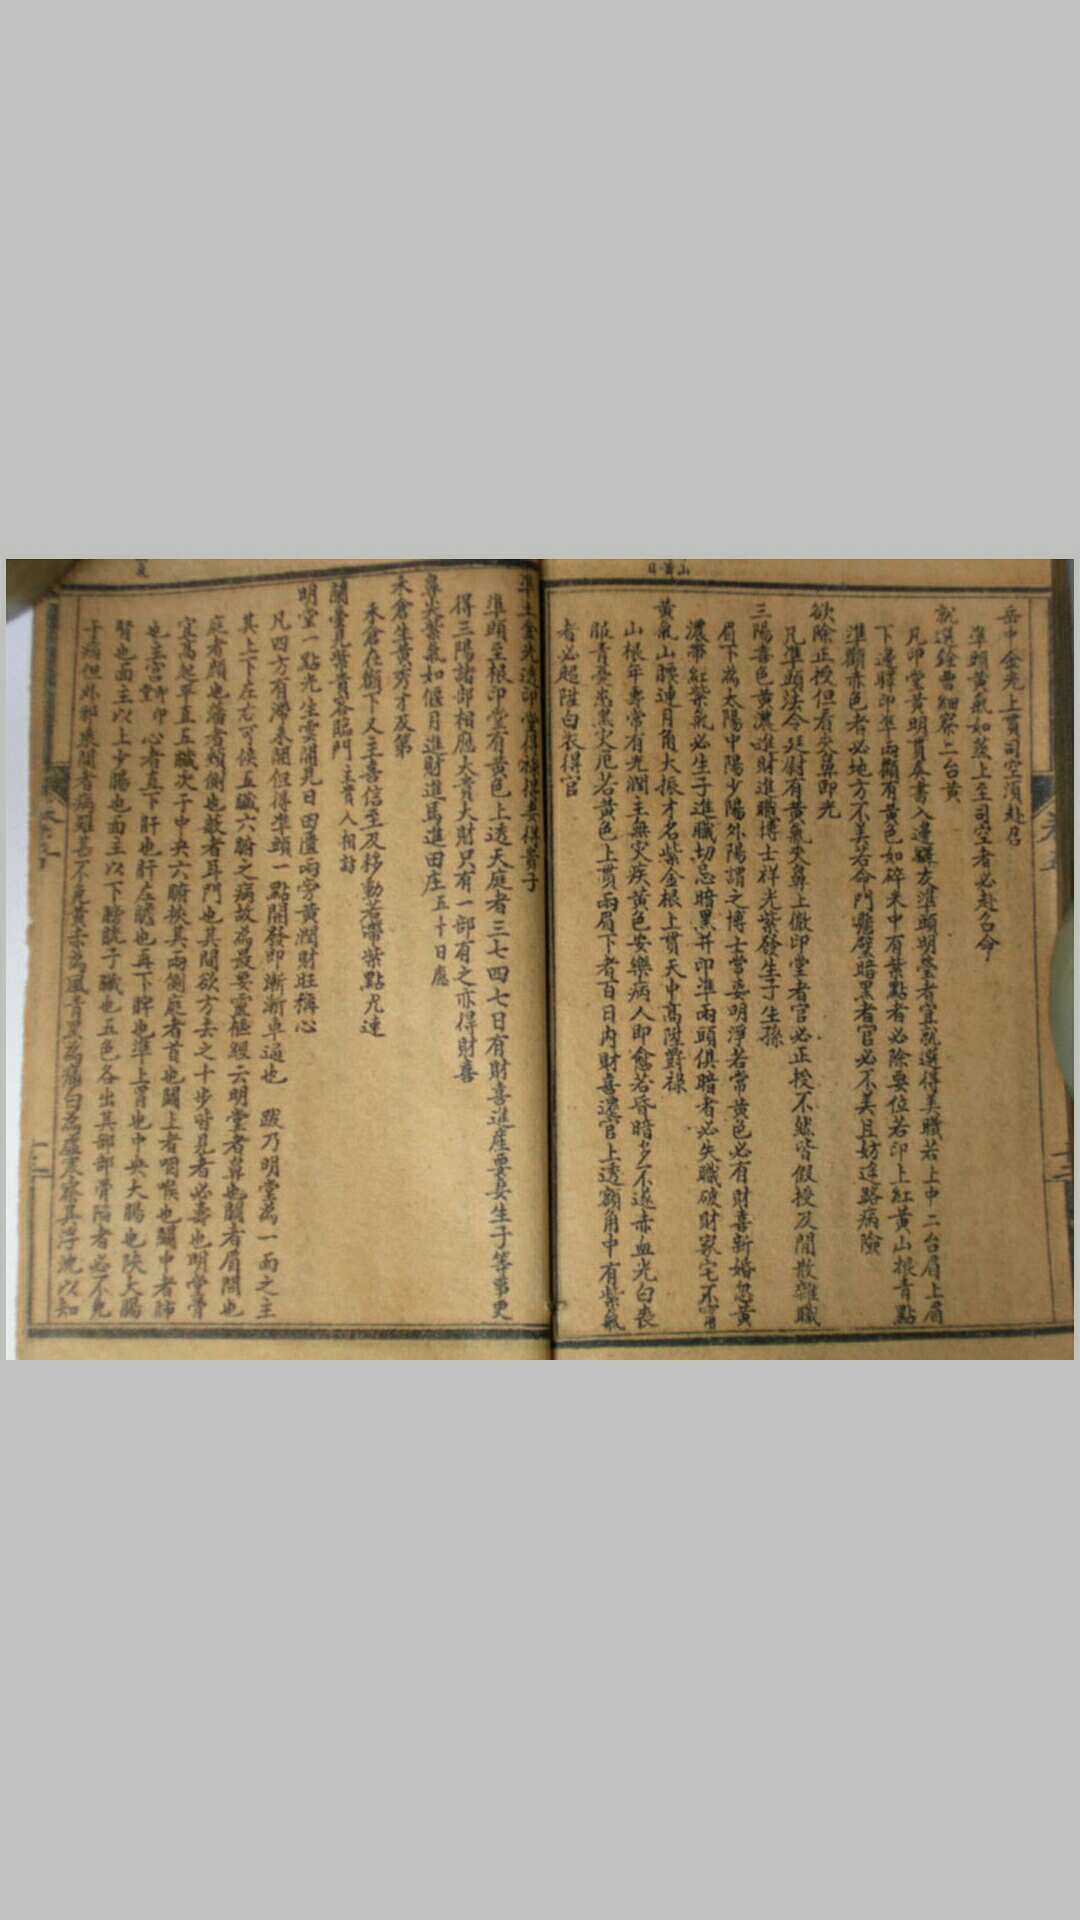 岳中金光上貫司空須赴召
準頭黃氣如蒸上至司空者必赴召命
就選銓曹細察二台黃
凡印堂黃明貫矣書入邊驛友準頭明瑩者宜就選得美職若上中二台眉上眉
下邊驛印準兩顴有黃色如碎米中有紫點者必除要位若印上紅黃山根青點
準顴赤色者必地方不美若命門暗黑者官必不美且妨途路病險
欲除正授但看夾鼻即光
凡準頭法令廷尉有黃氣夾鼻上徹印堂者官必正授不然皆假授及閒散雜職
三陽喜色黃濃進財進職博士祥光紫發生子生孫
眉下為太陽中陽少陽外陽謂之博士常要明淨若常黃色必有財喜新婚忽黃
濃帶紅紫氣必生子進職切忌暗黑并印準兩頭俱暗者必失職破財家宅不寧
黃氣山腰連月角大振才名紫金根上貫天中高陞爵祿
山根年壽常有光潤主無災疾黃色安樂病人即愈若昏暗多不遂赤血光白喪
服青憂黑災厄若黃色上貫兩眉下者百日內財喜濃官上透額角中有紫氣
者必超陞白衣得官
準土金光透印堂得祿得妻得貴子
準頭至根印堂有黃色上透天庭者三七四七日有財喜進產要妾生子等事更
得三陽諸部相應大貴大財只有一部有之亦得財喜
鼻尖紫氣如偃月進財進馬進田庄五十日應
禾倉生黃秀才及第
禾倉在顴下又主喜信至及移動若帶紫點尤速
蘭堂見紫貴客臨門主貴人相訪
明堂一點光生雲開見日甲匱兩旁黃潤財旺稱心
凡四方有滯未開但得準頭一點開發即漸漸卓通也 跋乃明堂為一面之主
其上下左右可候五臟六腑之病故為最要靈樞經云明堂者鼻也闕者眉間也
庭者顏也蕃者頰側也蔽者耳門也其間欲方去之十步皆見者必壽也明堂骨
宜高起平直五臟次于中央六腑挾其兩側庭者首也闕上者咽喉也闕中者肺
也王宮堂即心者直下肝也肝左膽也再下脾也準上胃也中央大腸也挾大腸
腎也面王以上少腸也面王以下膀胱子臟也五色各出其部部骨陷者必不免
于病但外邪乘間者病雖甚不免黃赤為風青黑為痛白為虛寒察其浮沈以知